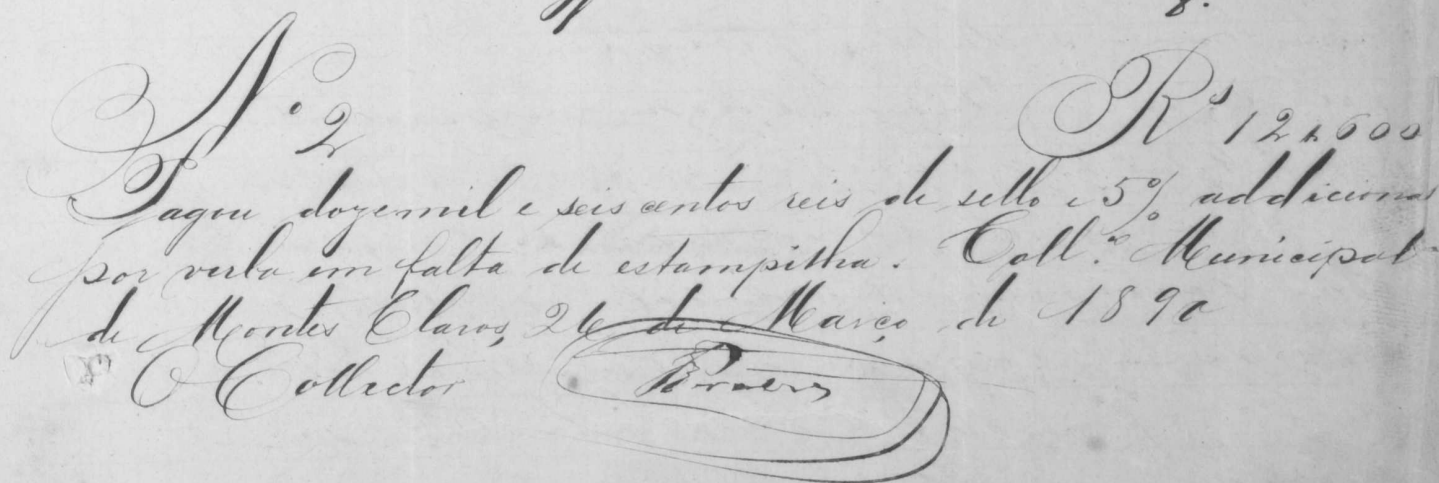 Nº 2 Rs 12$600
Pagou dozemil e seis centos reis de sello e 5% addicionaes
por verba em falta de estampilha. Collª Municipal
de Montes Claros, 26 de Março de 1890
O Collector